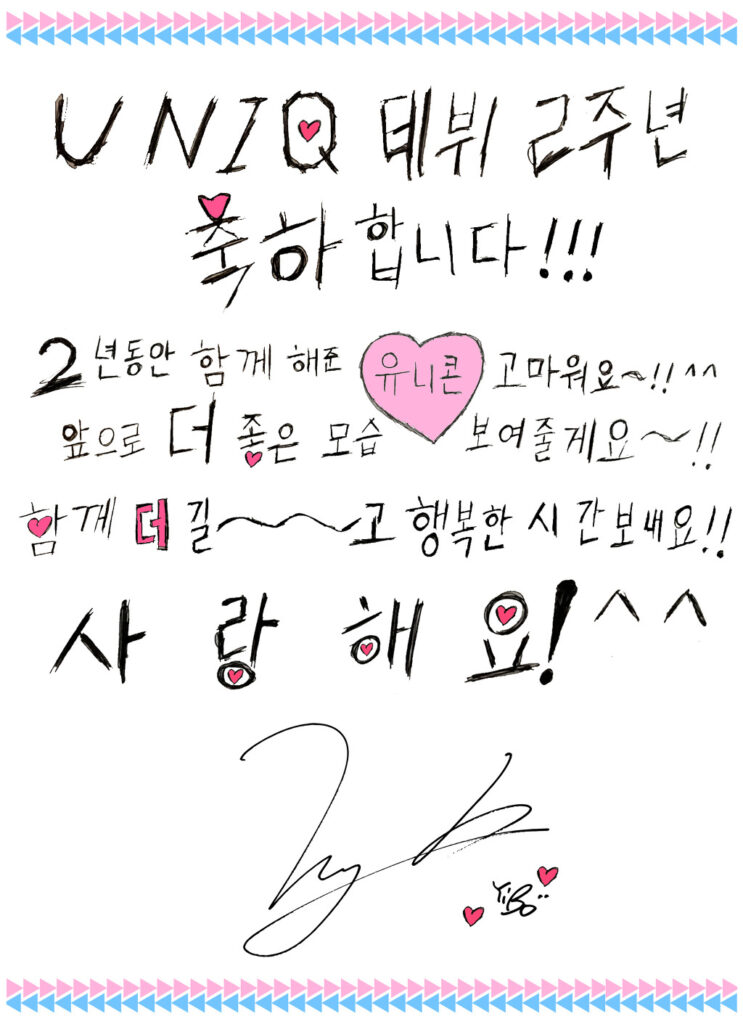 UNIQ 데뷔 2주년
축하합니다!!!
2년동안 함께 해준 유니콘 고마워요~!! ^^
앞으로 더 좋은 모습 보여줄게요~!!
함께 더 길~~고 행복한 시간보내요!!
사랑해요! ^^
YiBo